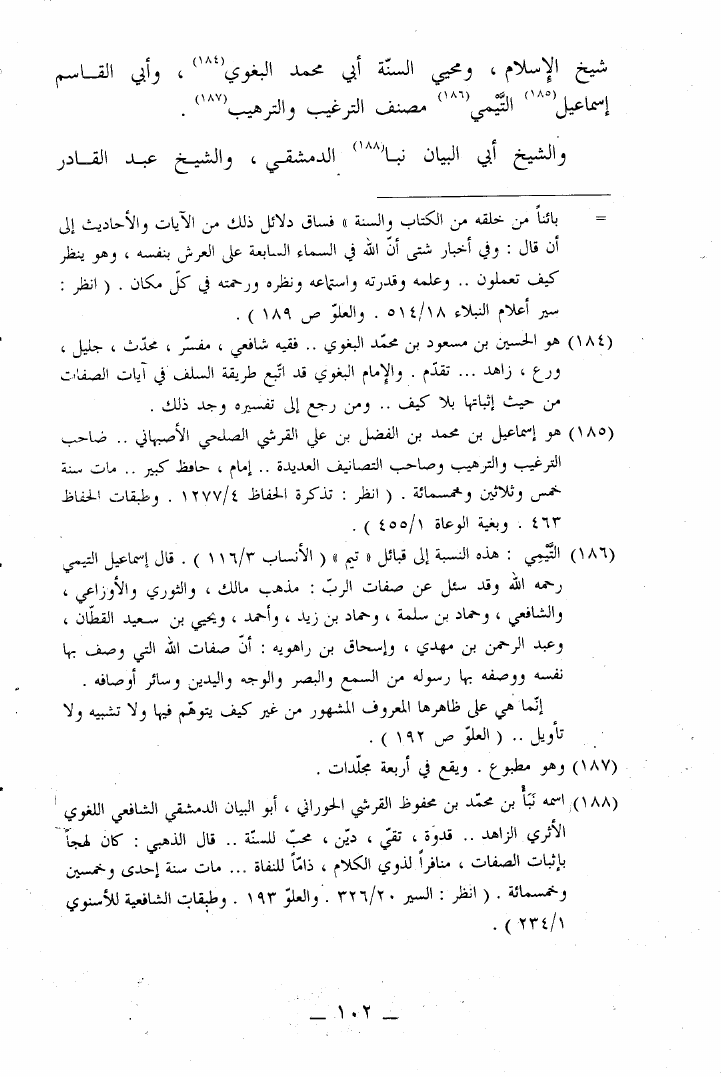 شيخ الإسلام ، ومحيي السنّة أبي محمد البغوي(١٨٤) ، وأبي القـاسم
إسماعيل(١٨٥) التَّيْمي(١٨٦) مصنف الترغيب والترهيب(١٨٧) .
والشيخ أبي البيان نبـا(١٨٨) الدمشقـي ، والشيـخ عبـد القـادر
= بائناً من خلقه من الكتاب والسنة » فساق دلائل ذلك من الآيات والأحاديث إلى
أن قال : وفي أخبار شتى أنّ الله في السماء السابعة على العرش بنفسه ، وهو ينظر
كيف تعملون .. وعلمه وقدرته واستماعه ونظره ورحمته في كلّ مكان . ( انظر :
سير أعلام النبلاء ٥١٤/١٨ . والعلوّ ص ١٨٩ ) .
(١٨٤) هو الحسين بن مسعود بن محمّد البغوي .. فقيه شافعي ، مفسّر ، محدّث ، جليل ،
ورع ، زاهد ... تقدّم . والإمام البغوي قد اتّبع طريقة السلف في آيات الصفات
من حيث إثباتها بلا كيف .. ومن رجع إلى تفسيره وجد ذلك .
(١٨٥) هو إسماعيل بن محمد بن الفضل بن علي القرشي الصلحي الأصبهاني .. صاحب
الترغيب والترهيب وصاحب التصانيف العديدة .. إمام ، حافظ كبير .. مات سنة
خمس وثلاثين وخمسمائة . ( انظر : تذكرة الحفاظ ١٢٧٧/٤ . وطبقات الحفاظ
٤٦٣ . وبغية الوعاة ٤٥٥/١ ) .
(١٨٦) التَّيْمِي : هذه النسبة إلى قبائل « تيم » ( الأنساب ١١٦/٣ ) . قال إسماعيل التيمي
رحمه الله وقد سئل عن صفات الربّ : مذهب مالك ، والثوري والأوزاعي ،
والشافعي ، وحماد بن سلمة ، وحماد بن زيد ، وأحمد ، ويحيى بن سـعيد القطّان ،
وعبد الرحمن بن مهدي ، وإسحاق بن راهويه : أنّ صفات الله التي وصف بها
نفسه ووصفه بها رسوله من السمع والبصر والوجه واليدين وسائر أوصافه .
إنّما هي على ظاهرها المعروف المشهور من غير كيف يتوهّم فيها ولا تشبيه ولا
تأويل .. ( العلوّ ص ١٩٢ ) .
(١٨٧) وهو مطبوع . ويقع في أربعة مجلّدات .
(١٨٨) اسمه نَبَأْ بن محمّد بن محفوظ القرشي الحوراني ، أبو البيان الدمشقي الشافعي اللغوي
الأثري الزاهد .. قدوة ، تقيّ ، ديّن ، محبّ للسنّة .. قال الذهبي : كان لهجاً
بإثبات الصفات ، منافراً لذوي الكلام ، ذامّاً للنفاة ... مات سنة إحدى وخمسين
وخمسمائة . ( انظر : السير ٣٢٦/٢٠ . والعلوّ ١٩٣ . وطبقات الشافعية للأسنوي
٢٣٤/١ ) .
_ ١٠٢ _